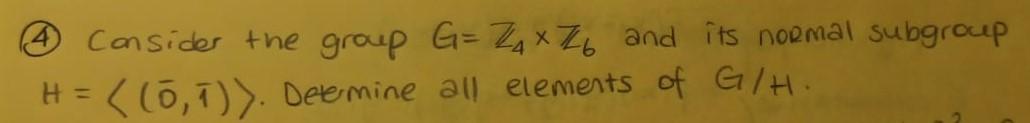 ④ Consider the group G = ℤ₄ × ℤ₆ and its normal subgroup
H = ⟨(0̄, 1̄)⟩. Determine all elements of G/H.